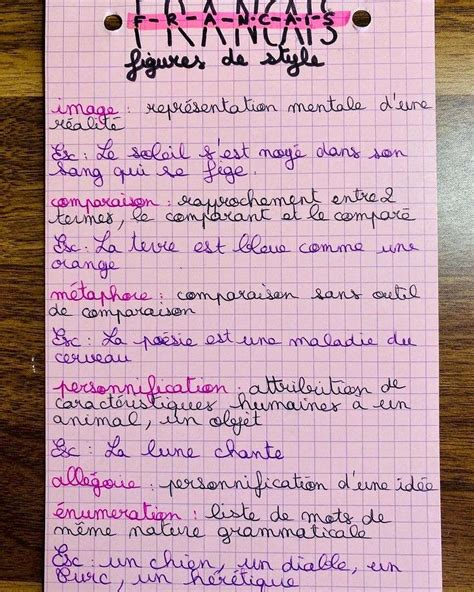 FRANCAIS
figures de style
image : représentation mentale d'une
réalité
Ex : Le soleil s'est noyé dans son
sang qui se fige.
comparaison : rapprochement entre 2
termes, le comparant et le comparé
Ex : La terre est bleue comme une
orange
métaphore : comparaison sans outil
de comparaison
Ex : La poésie est une maladie du
cerveau
personnification : attribution de
caractéristiques humaines à un
animal, un objet
Ex : La lune chante
allégorie : personnification d'une idée
énumeration : liste de mots de
même nature grammaticale
Ex : un chien, un diable, un
Turc, un hérétique